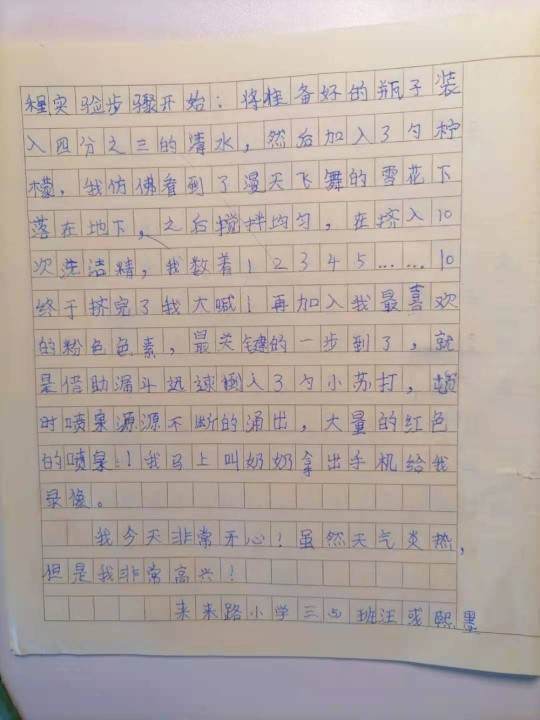 程实验步骤开始：将准备好的瓶子装
入四分之三的清水，然后加入3勺柠
檬，我仿佛看到了漫天飞舞的雪花下
落在地下，之后搅拌均匀，在挤入10
次洗洁精，我数着12345……10
终于挤完了我大喊！再加入我最喜欢
的粉色色素，最关键的一步到了，就
是借助漏斗迅速倒入3勺小苏打，顿
时喷泉源源不断的涌出，大量的红色
的喷泉！！我马上叫奶奶拿出手机给我
录像。
我今天非常开心！虽然天气炎热，
但是我非常高兴！
来来路小学三 班汪 熙墨